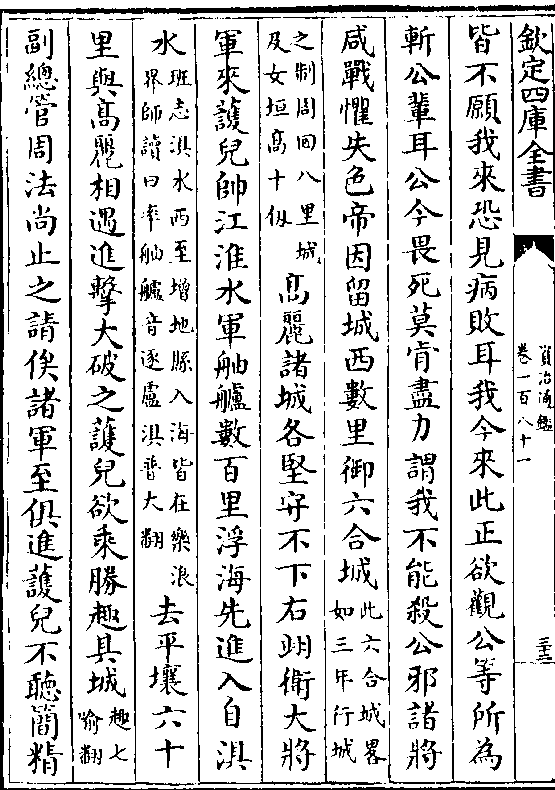 欽定四庫全書
資治通鑑
卷一百八十一
皆不願我來恐見病敗耳我今來此正欲觀公等所為
斬公輩耳公今畏死莫肯盡力謂我不能殺公邪諸將
咸戰懼失色帝因留城西數里御六合城此六合城畧如三年行城
之制周回八里城及女垣髙十仭髙麗諸城各堅守不下右翊衛大將
軍來護兒帥江淮水軍舳艫數百里浮海先進入自浿
水班志浿水西至增地縣入海皆在樂浪界師讀曰率舳艫音逐盧浿普大翻去平壤六十
里與髙麗相遇進擊大破之護兒欲乘勝趣其城趣七喻翻
副總管周法尚止之請俟諸軍至俱進護兒不聽簡精